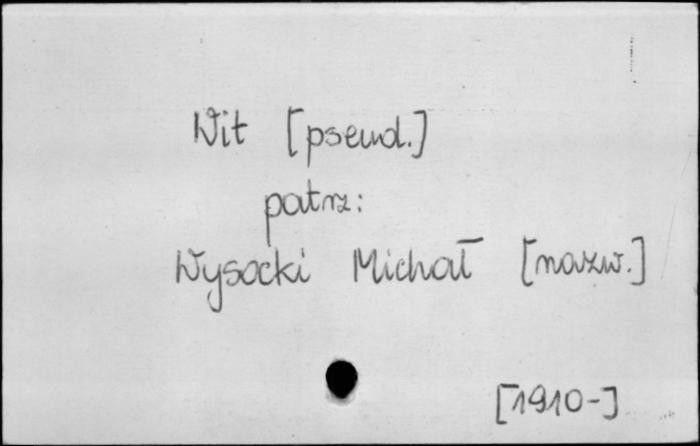 Wit [pseud.]
patrz:
Wysocki Michał [nazw.]
[1910-]